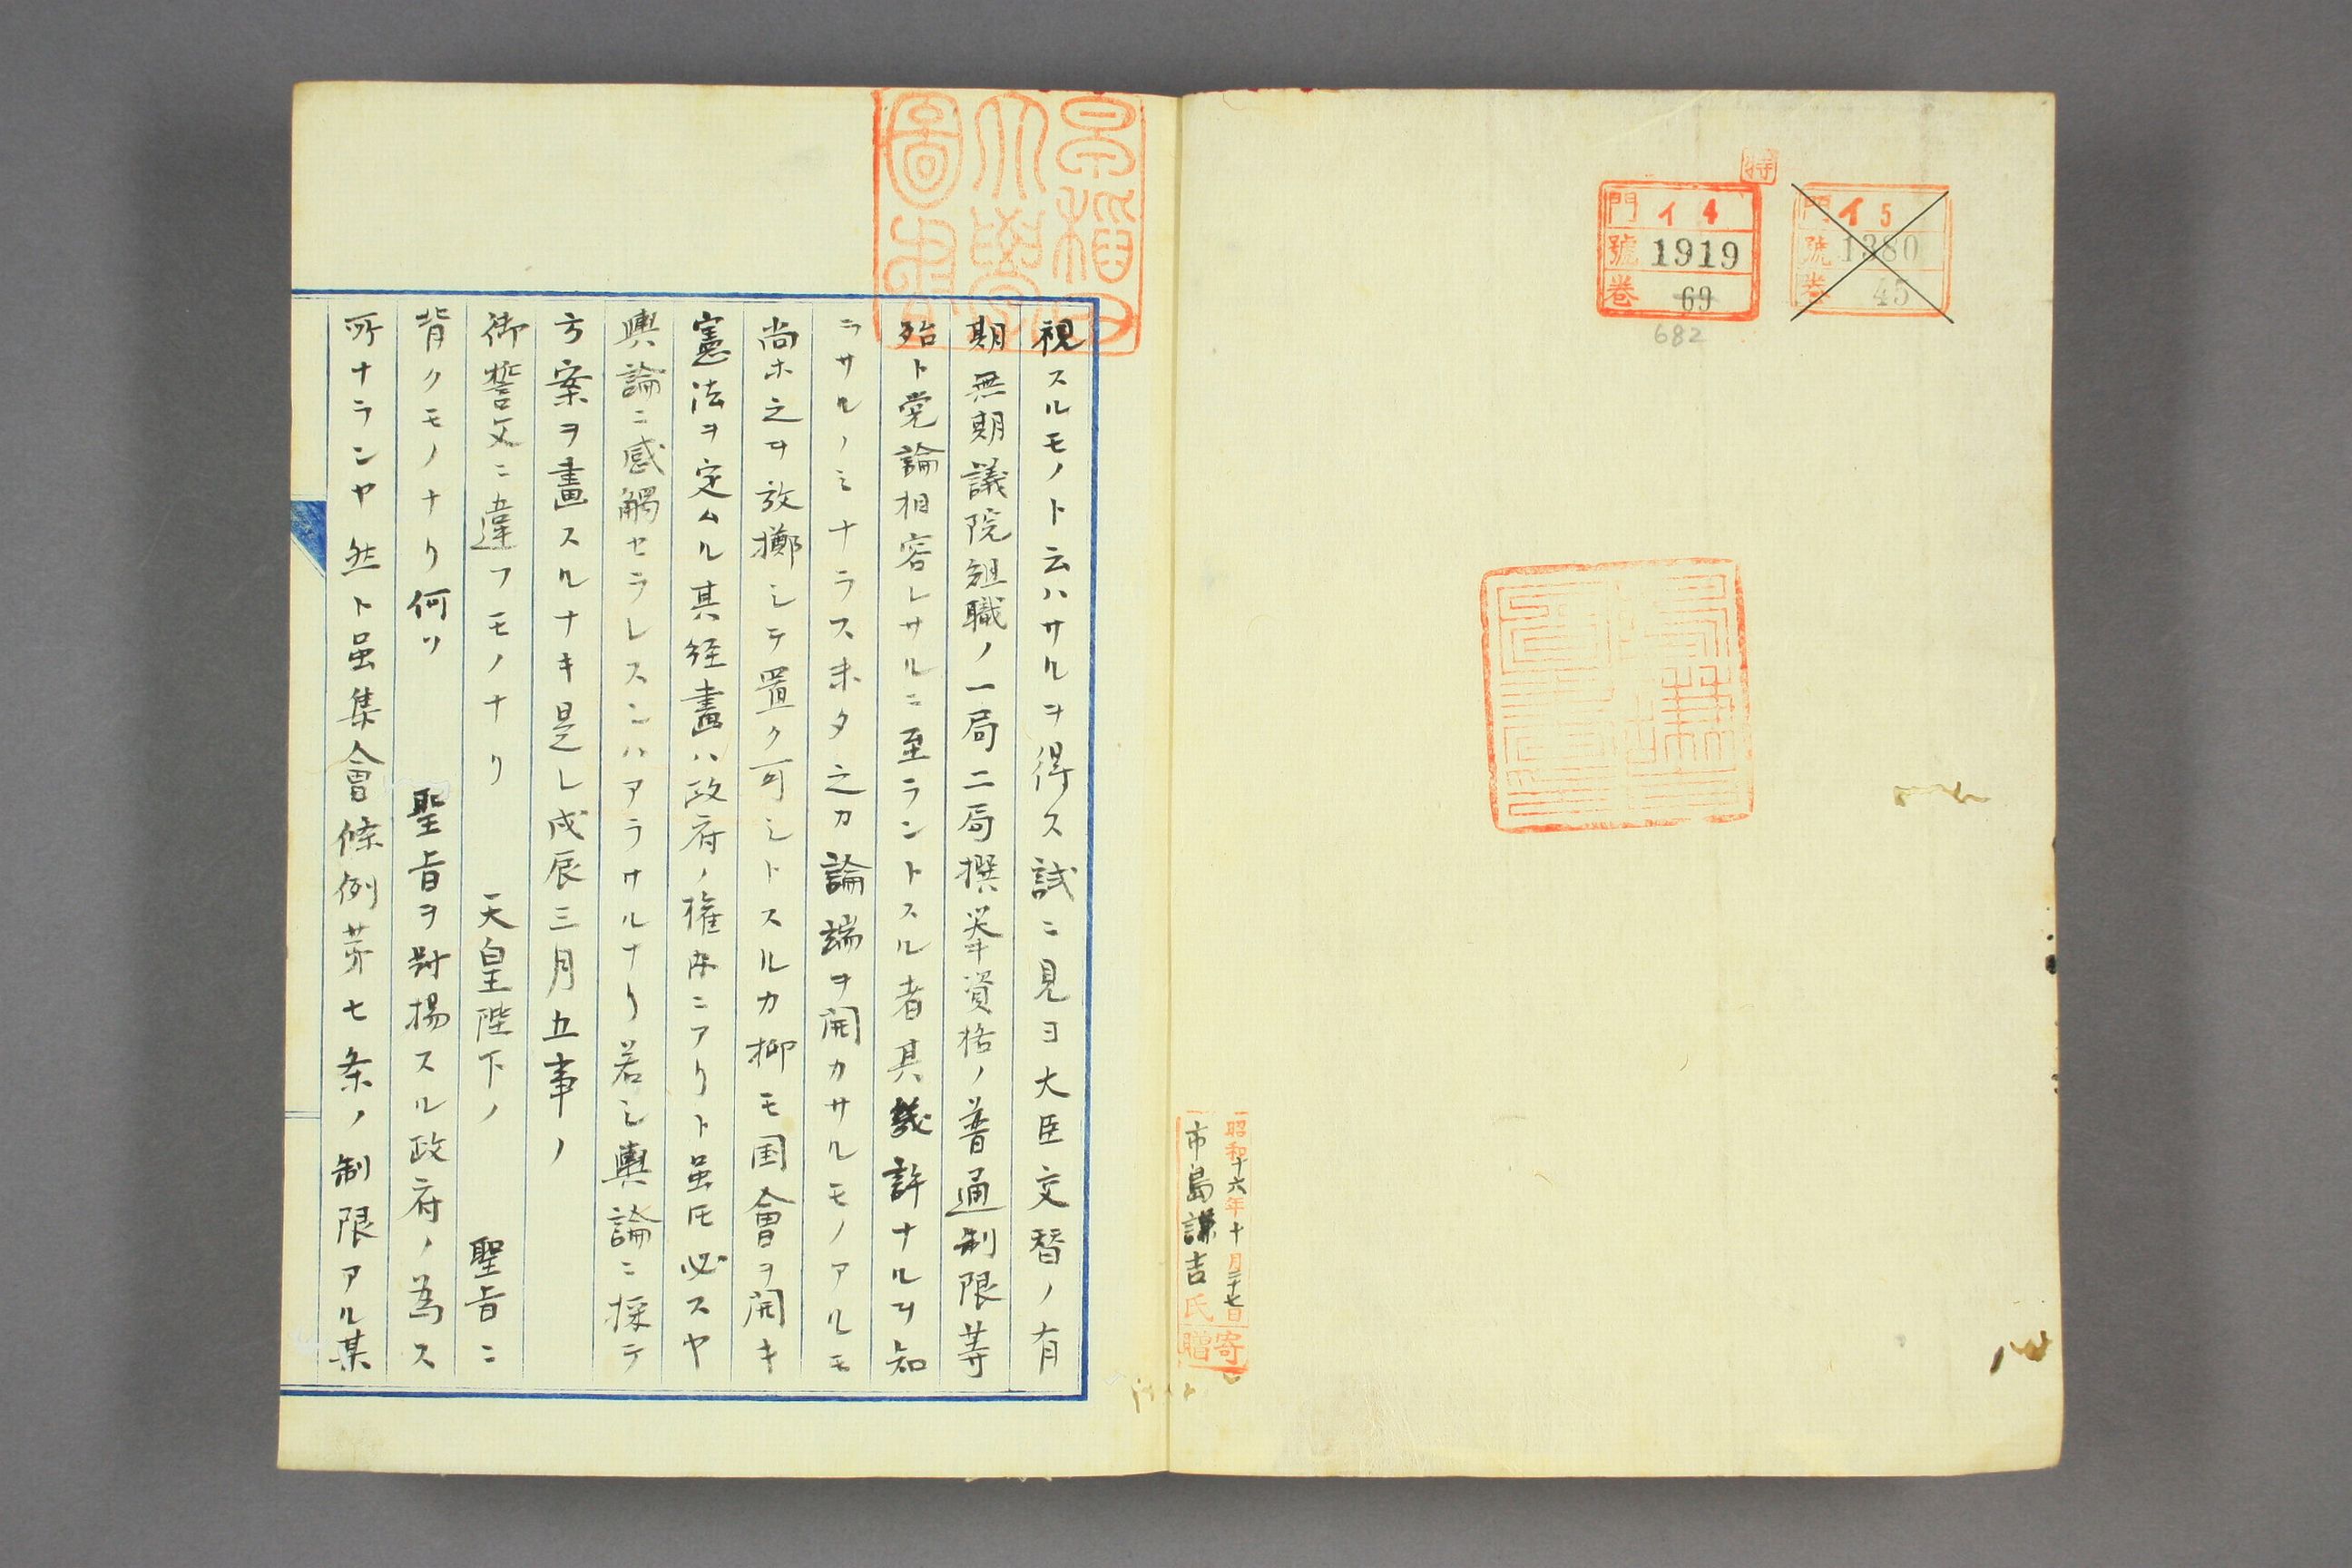 特
門 イ4
號 1919
卷 69
682
門 イ5
號 1380
卷 45
昭和十六年十月二十七日
市島謙吉氏
寄贈
早稲田
大學
圖書
視スルモノト云ハサルヲ得ス試ニ見ヨ大臣交替ノ有
期無期議院組職ノ一局二局撰挙資格ノ普通制限等
殆ト党論相容レサルニ至ラントスル者其幾許ナルヲ知
ラサルノミナラス未タ之カ論端ヲ開カサルモノアルモ
尚ホ之ヲ放擲シテ置ク可シトスルカ抑モ国會ヲ開キ
憲法ヲ定ムル其経畫ハ政府ノ権内ニアリト虽𪜈必スヤ
輿論ニ感觸セラレスンハアラサルナリ若シ輿論ニ採テ
方案ヲ畫スルナキ是レ戊辰三月五事ノ
御誓文ニ違フモノナリ 天皇陛下ノ 聖旨ニ
背クモノナリ何ソ 聖旨ヲ対揚スル政府ノ為ス
所ナランヤ然ト虽集會條例第七条ノ制限アル某